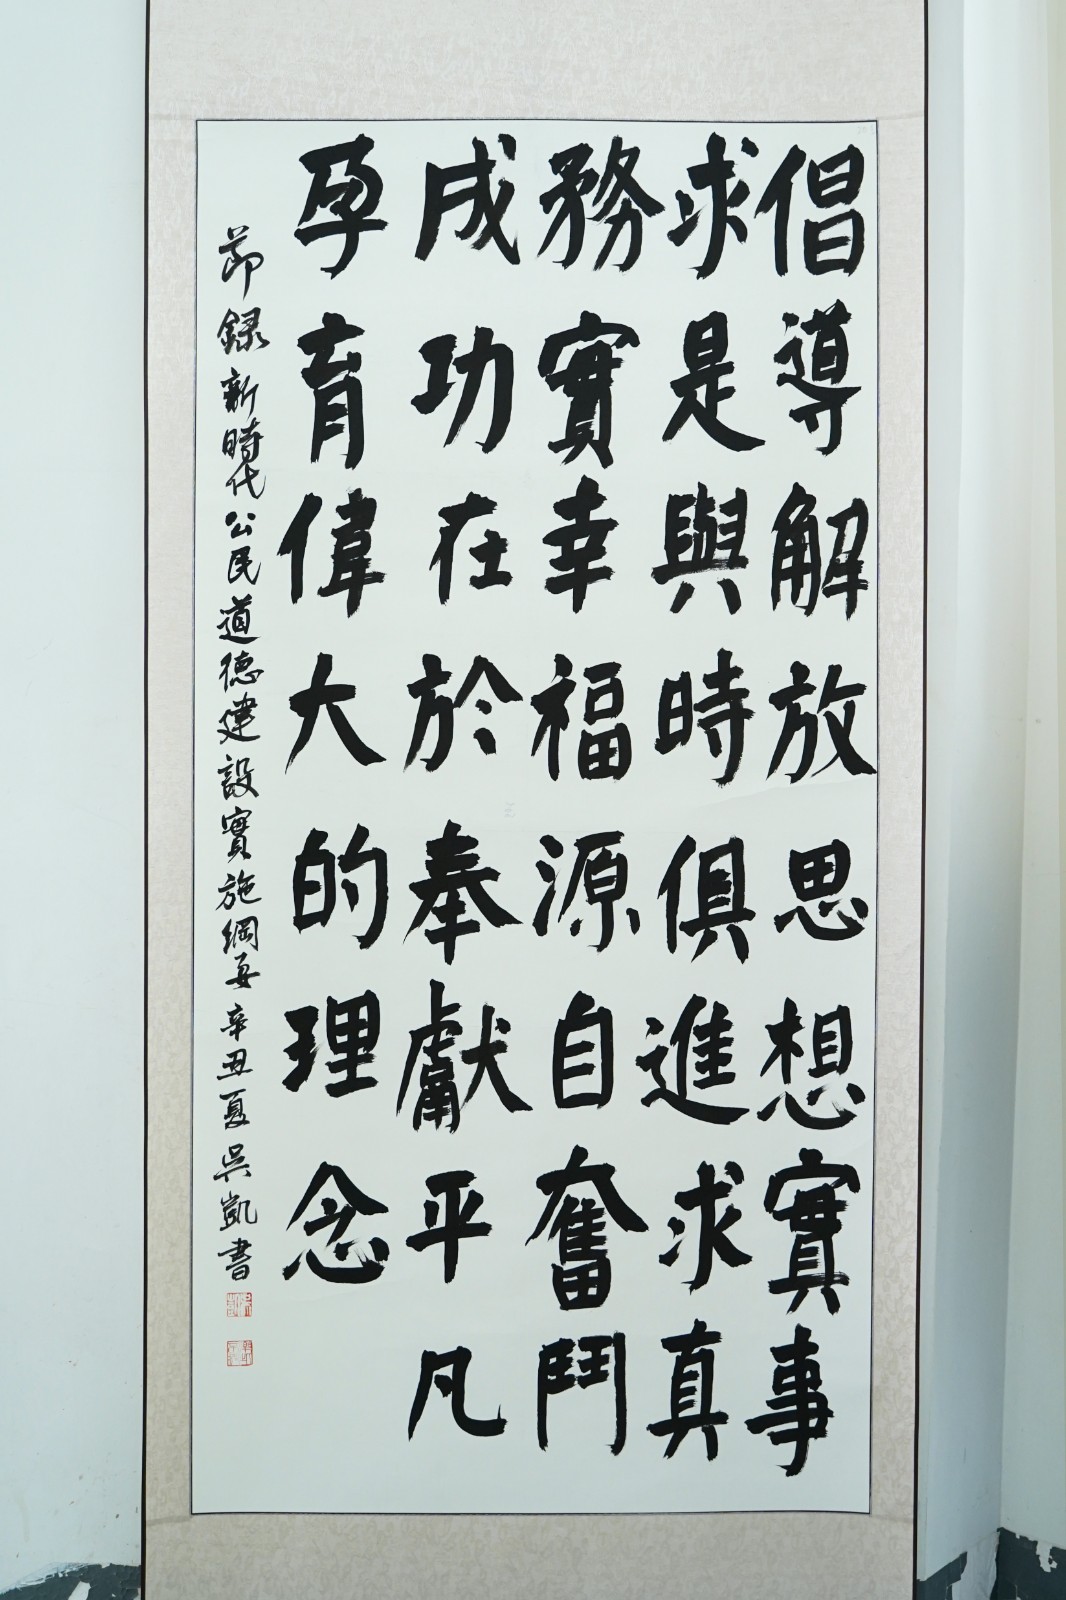 倡導解放思想實事
求是與時俱進求真
務實幸福源自奮鬥
成功在於奉獻平凡
孕育偉大的理念
節録新時代公民道德建設實施綱要辛丑夏吳凱書